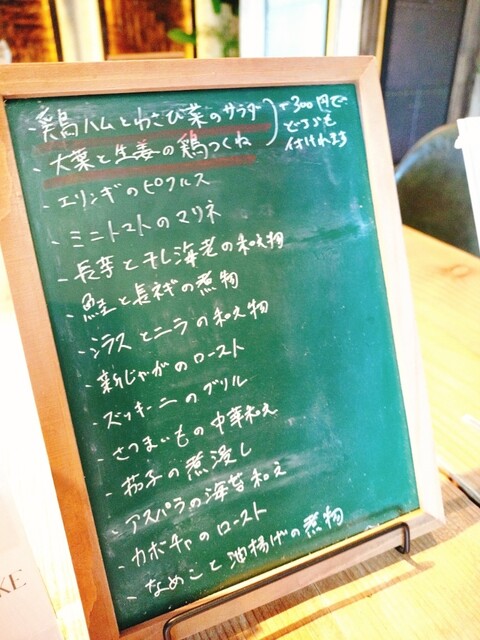 ・鶏ハムとわさび菜のサラダ
・大葉と生姜の鶏つくね
+300円で
どちらも
付けれます
・エリンギのピクルス
・ミニトマトのマリネ
・長芋と干し海老の和え物
・鮭と長ネギの煮物
・シラスとニラの和え物
・新じゃがのロースト
・ズッキーニのグリル
・さつまいもの中華和え
・茄子の煮浸し
・アスパラの海苔和え
・カボチャのロースト
・なめこと油揚げの煮物
KE